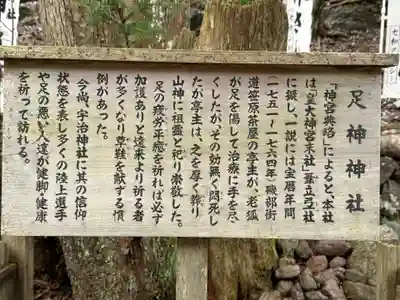 足神神社
「神宮典略」によると本社
は「皇大神宮末社」葦立弖社
に擬し、一説には宝暦年間
(一七五一〜一七六四年)磯部街
道笹原茶屋の亭主が、老狐
が足を傷して治療に手を尽
くしたが、その効無く悶死し
たが亭主は、之を厚く葬り
山神に祖霊と祀り崇敬した。
足の疲労平癒を祈れば必ず
加護ありと遠来より祈る者
が多くなり草鞋を献する慣
例があった。
今尚、宇治神社に其の信仰
状態を表し多くの陸上選手
や足の悪い人達が健脚、健康
を祈って訪れる。